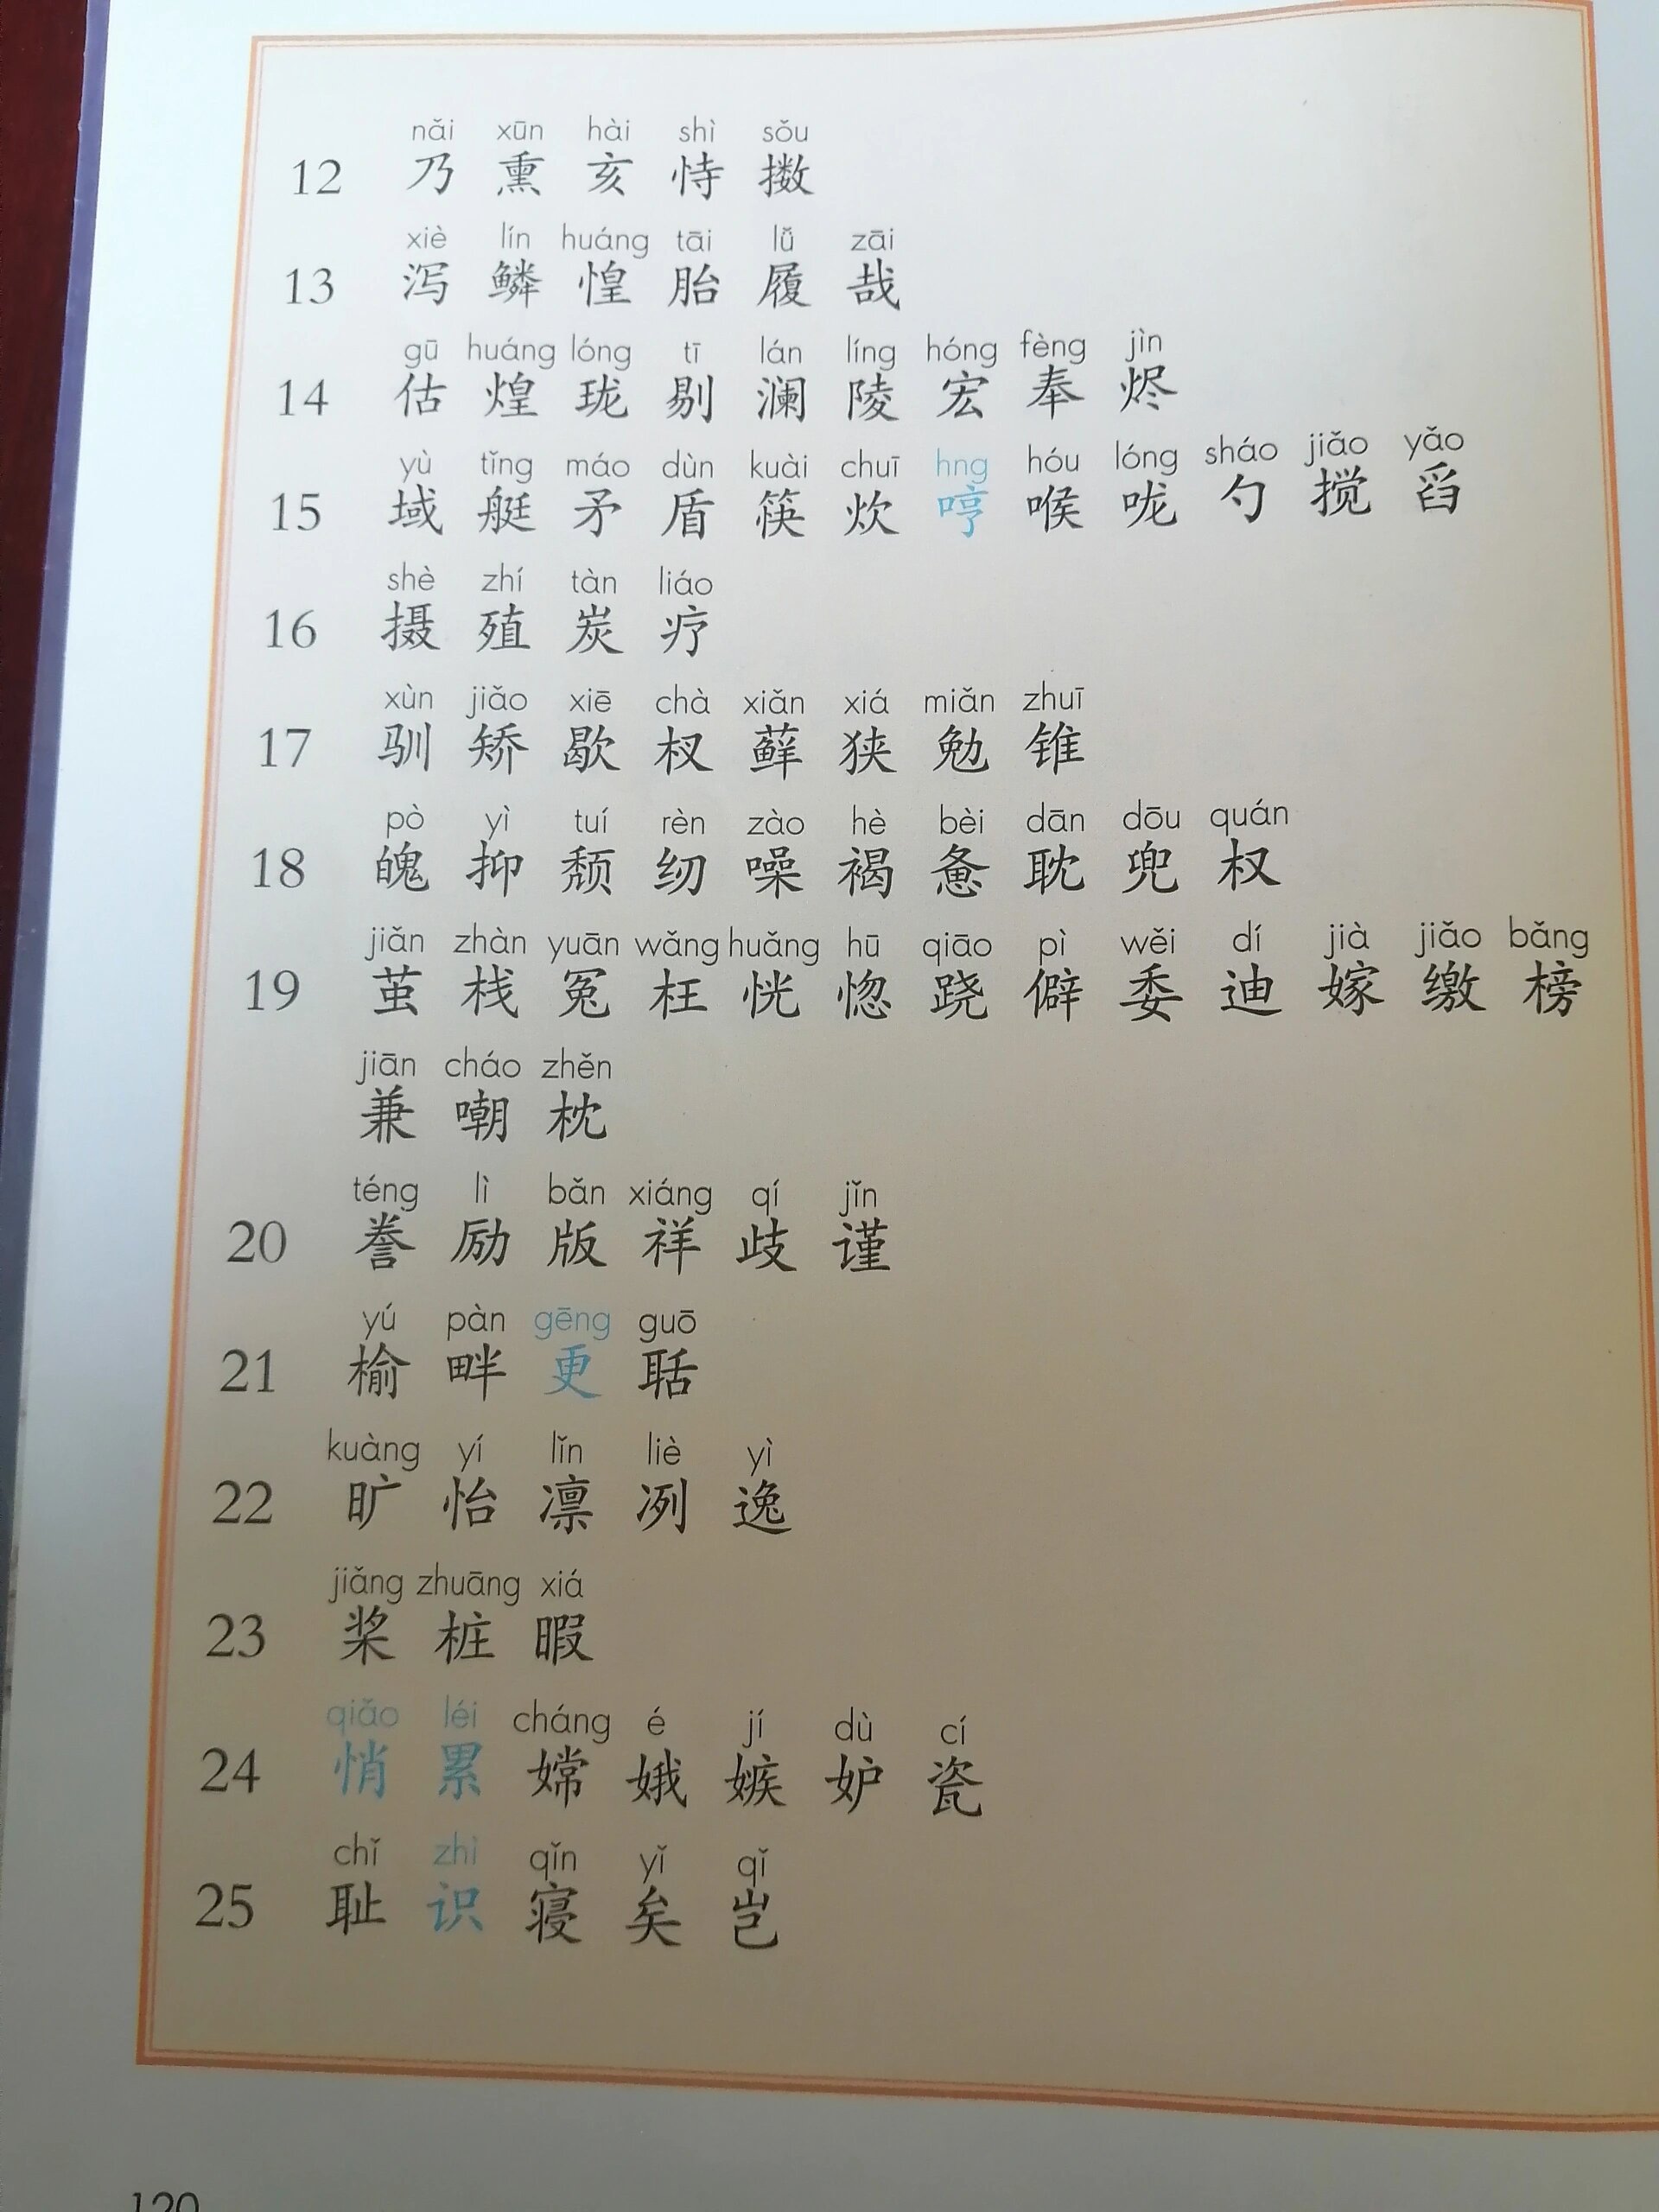 nǎi xūn hài shì sǒu
12 乃 熏 亥 恃 擞
xiè lín huáng tāi lǚ zāi
13 泻 鳞 惶 胎 履 哉
gū huáng lóng tī lán líng hóng fèng jìn
14 估 煌 珑 剔 澜 陵 宏 奉 烬
yù tǐng máo dùn kuài chuī hng hóu lóng sháo jiǎo yǎo
15 域 艇 矛 盾 筷 炊 哼 喉 咙 勺 搅 舀
shè zhí tàn liáo
16 摄 殖 炭 疗
xùn jiǎo xiē chà xiǎn xiá miǎn zhuī
17 驯 矫 歇 杈 藓 狭 勉 锥
pò yì tuí rèn zào hè bèi dān dōu quán
18 魄 抑 颓 纫 噪 褐 惫 耽 兜 权
jiǎn zhàn yuān wǎng huǎng hū qiāo pì wěi dí jià jiǎo bǎng
19 茧 栈 冤 枉 恍 惚 跷 僻 委 迪 嫁 缴 榜
jiān cháo zhěn
兼 嘲 枕
téng lì bǎn xiáng qí jǐn
20 誊 励 版 祥 歧 谨
yú pàn gēng guō
21 榆 畔 更 聒
kuàng yí lǐn liè yì
22 旷 怡 凛 冽 逸
jiǎng zhuāng xiá
23 桨 桩 暇
qiǎo léi cháng é jí dù cí
24 悄 累 嫦 娥 嫉 妒 瓷
chǐ zhì qǐn yǐ qǐ
25 耻 识 寝 矣 岂
120